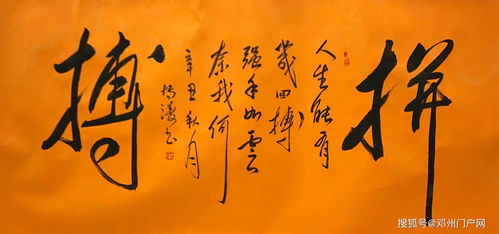 拼
人生能有
幾回搏
强手如雲
奈我何
辛丑秋月
搏
搜狐号@邓州门户网